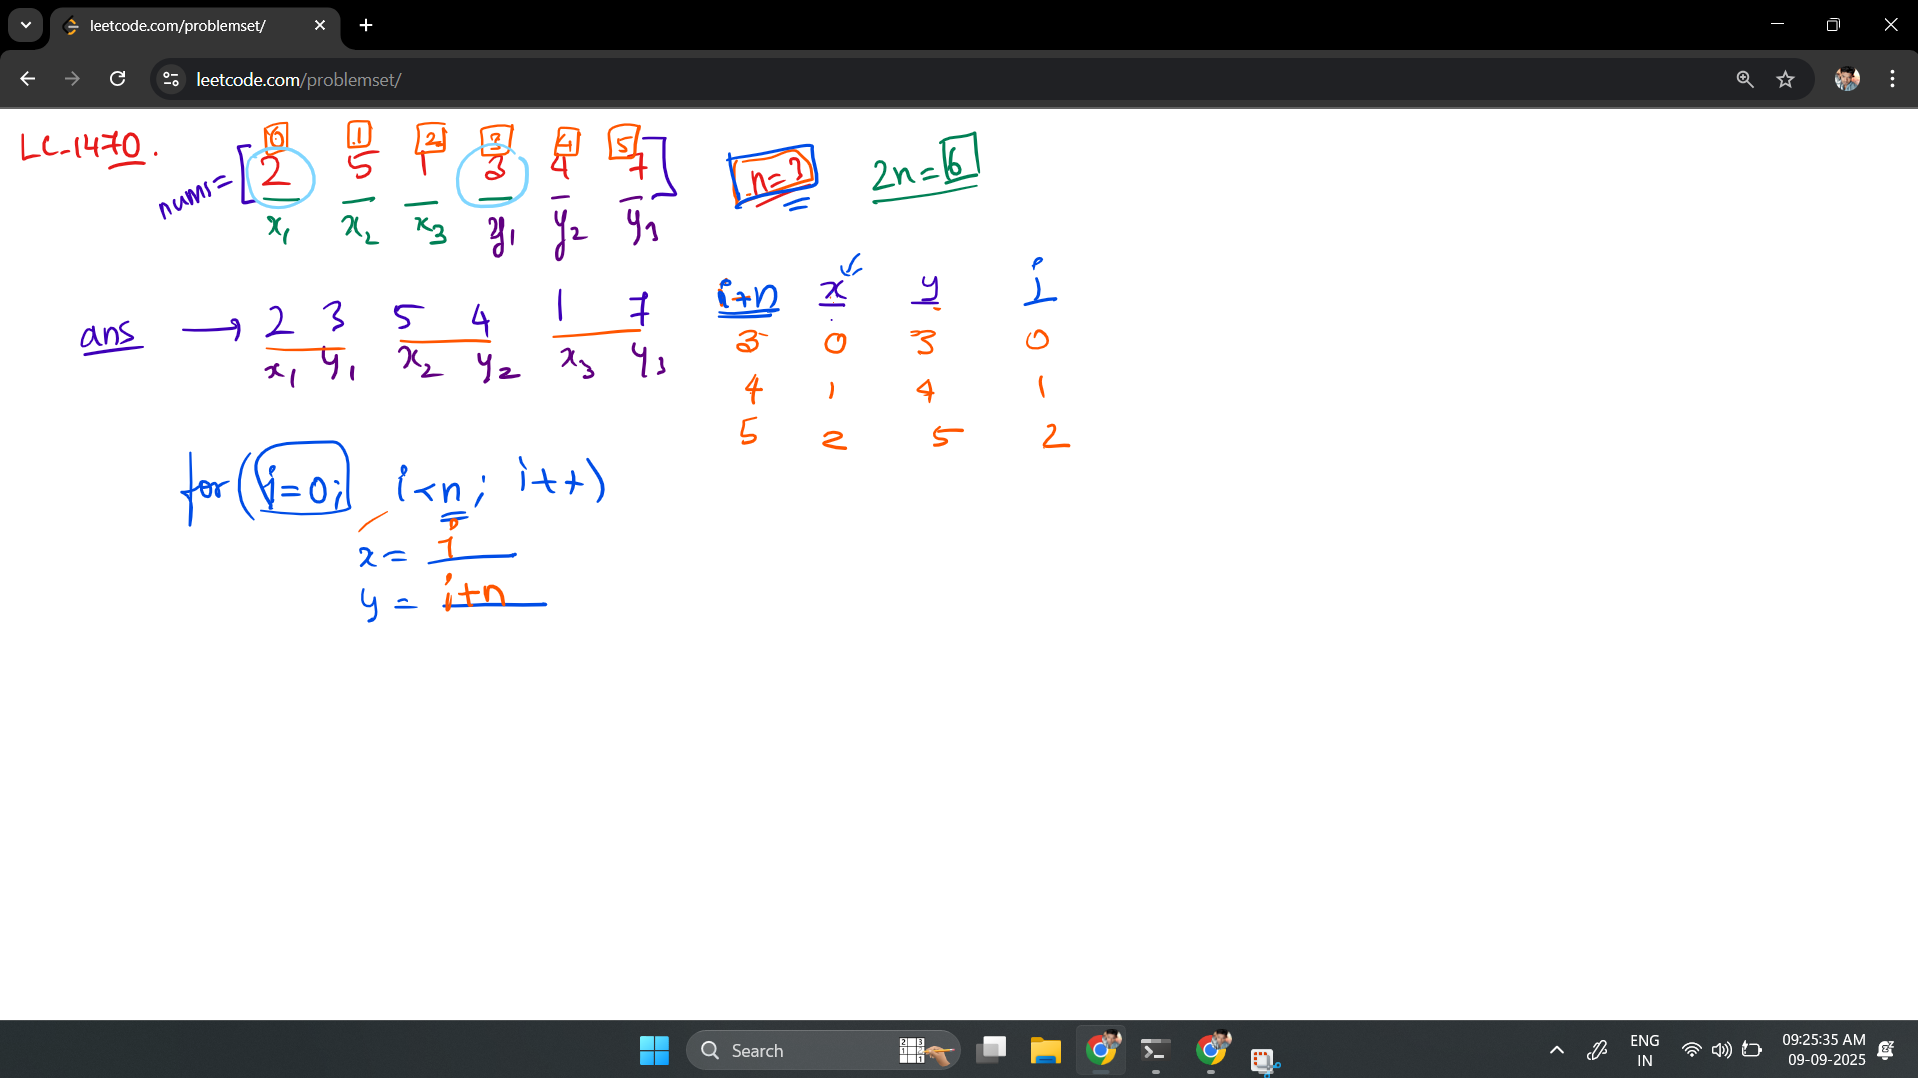 leetcode.com/problemset/
leetcode.com/problemset/
LC-1470.
0 1 2 3 4 5
nums= [ 2 5 1 3 4 7 ]
x1 x2 x3 y1 y2 y3
n=3
2n=6
ans → 2 3 5 4 1 7
x1 y1 x2 y2 x3 y3
i+n x y i
3 0 3 0
4 1 4 1
5 2 5 2
for(i=0; i<n; i++)
x= i
y= i+n
Search
ENG
IN
09:25:35 AM
09-09-2025